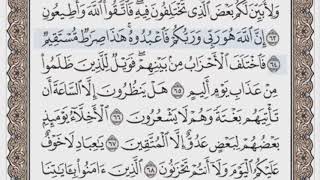 وَلِأُبَيِّنَ لَكُم بَعْضَ ٱلَّذِى تَخْتَلِفُونَ فِيهِ فَٱتَّقُوا۟ ٱللَّهَ وَأَطِيعُونِ
إِنَّ ٱللَّهَ هُوَ رَبِّى وَرَبُّكُمْ فَٱعْبُدُوهُ هَٰذَا صِرَٰطٌ مُّسْتَقِيمٌ
فَٱخْتَلَفَ ٱلْأَحْزَابُ مِنۢ بَيْنِهِمْ فَوَيْلٌ لِّلَّذِينَ ظَلَمُوا۟
مِنْ عَذَابِ يَوْمٍ أَلِيمٍ ٦٥ هَلْ يَنظُرُونَ إِلَّا ٱلسَّاعَةَ أَن
تَأْتِيَهُم بَغْتَةً وَهُمْ لَا يَشْعُرُونَ ٦٦ ٱلْأَخِلَّآءُ يَوْمَئِذٍۭ
بَعْضُهُمْ لِبَعْضٍ عَدُوٌّ إِلَّا ٱلْمُتَّقِينَ ٦٧ يَٰعِبَادِ لَا خَوْفٌ
عَلَيْكُمُ ٱلْيَوْمَ وَلَآ أَنتُمْ تَحْزَنُونَ ٦٨ ٱلَّذِينَ ءَامَنُوا۟ بِـَٔايَٰتِنَا